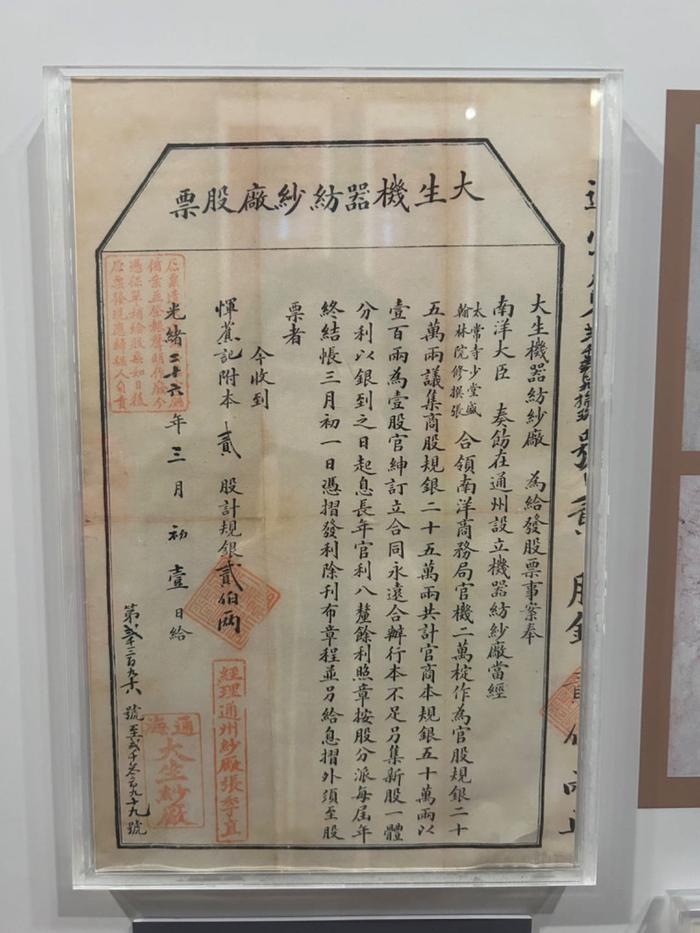 大生機器紡紗廠股票
大生機器紡紗廠 為給發股票事案奉
南洋大臣 奏飭在通州設立機器紡紗廠當經
太常寺少堂盛
翰林院修撰張
合領南洋商務局官機二萬梃作為官股規銀二十
五萬兩議集商股規銀二十五萬兩共計官商本規銀五十萬兩以
壹百兩為壹股官紳訂立合同永遠合辦行本不足另集新股一體
分利以銀到之日起息長年官利八釐餘利照章按股分派每屆年
終結帳三月初一日憑摺發利除刊布章程並另給息摺外須至股
票者
今收到
惲蕉記附本 貳 股計規銀貳伯兩
經理通州紗廠張季直
光緒二十六年 三 月 初 壹 日給
憑保單補給股票如日後
原票發現應歸經人負責
第 號至貳千叁百九十九號
通海
大生紗廠